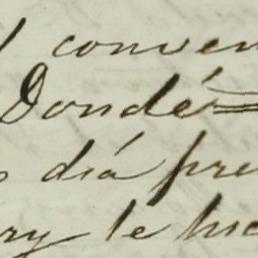 conven
Dondé
dia pre
ry le hic